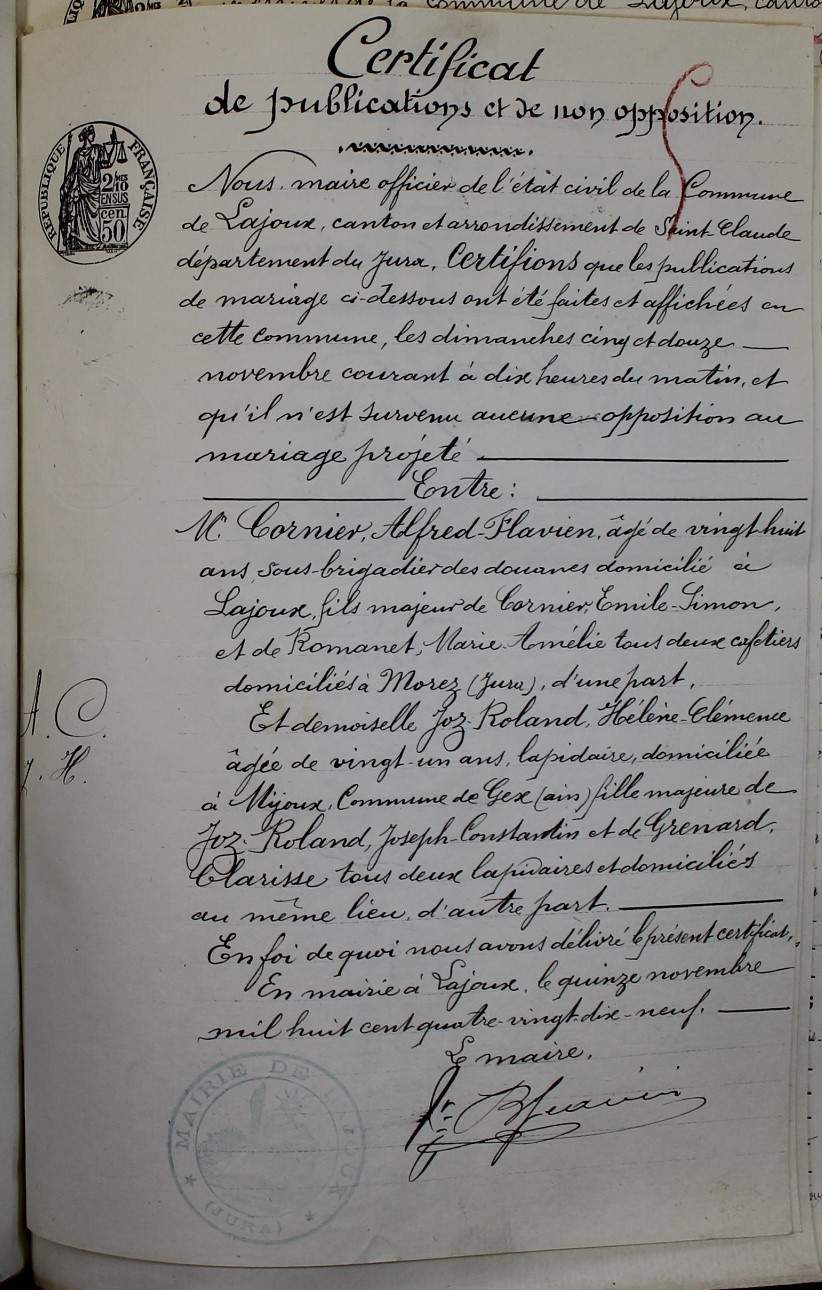 Certificat
de publications et de non opposition.
RÉPUBLIQUE FRANÇAISE
2/10
EN SUS
cen.
50
Nous, maire officier de l'état civil de la Commune
de Lajoux, canton et arrondissement de Saint Claude
département du Jura, Certifions que les publications
de mariage ci-dessous ont été faites et affichées en
cette commune, les dimanches cinq et douze
novembre courant à dix heures du matin, et
qu'il n'est survenu aucune opposition au
mariage projeté
Entre :
Mr. Cornier, Alfred-Flavien, âgé de vingt-huit
ans, sous-brigadier des douanes domicilié à
Lajoux, fils majeur de Cornier, Emile-Simon,
et de Romanet, Marie-Amélie tous deux cafetiers
domiciliés à Morez (Jura), d'une part,
Et demoiselle Joz-Roland, Hélène-Clémence
âgée de vingt-un ans, lapidaire, domiciliée
à Mijoux, Commune de Gex (ain) fille majeure de
Joz-Roland, Joseph-Constantin et de Grenard,
Clarisse tous deux lapidaires et domiciliés
au même lieu, d'autre part.
En foi de quoi nous avons délivré le présent certificat,
En mairie à Lajoux, le quinze novembre
mil huit cent quatre-vingt-dix-neuf.
Le maire,
A. C.
J. H.
MAIRIE DE LAJOUX
(JURA)